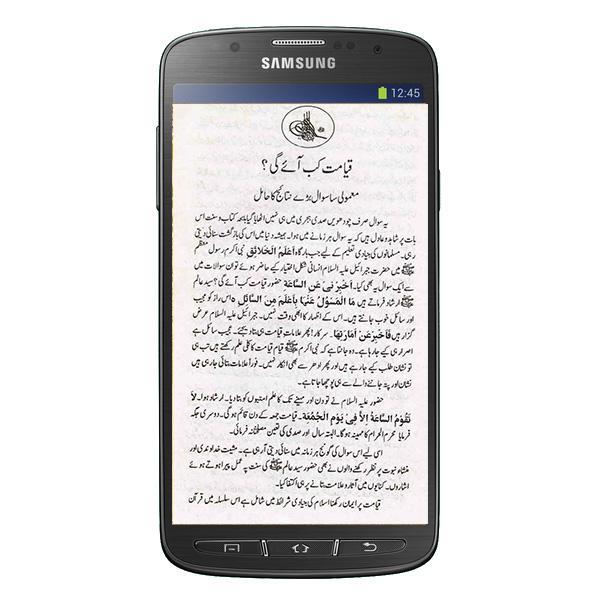 SAMSUNG
12:45
قیامت کب آئے گی؟
معمولی سا سوال بڑے نتائج کا حامل
یہ سوال صرف چودھویں صدی ہجری میں ہی نہیں اٹھایا گیا بلکہ کتاب و سنت اس
بات پر شاہد و عادل ہیں کہ یہ سوال ہر زمانے میں ہوا۔ ہمیشہ دنیا میں اس کی بازگشت سنائی دیتی
رہی۔ مسلمانوں کی بنیادی تعلیم کے لیے جب بارگاہ اَعْلَمُ الْخَلَائِقِ نبی اکرم رسول معظم
ﷺ میں حضرت جبرائیل علیہ السلام انسانی شکل اختیار کیے حاضر ہوئے تو ان سوالات میں
سے ایک سوال یہ بھی کیا۔ اَخْبِرْنِیْ عَنِ السَّاعَۃِ حضور قیامت کب آئے گی؟ سید عالم
ﷺ ارشاد فرماتے ہیں مَا الْمَسْؤُلُ عَنْہَا بِاَعْلَمَ مِنَ السَّائِلِ ہ اس راز کو مجیب
اور سائل خوب جانتے ہیں۔ اس کے اظہار کا ابھی وقت نہیں۔ جبرائیل علیہ السلام عرض
گزار ہیں فَاَخْبِرْ عَنْ اَمَارَتِہَا۔ سرکار! پھر علامات قیامت ہی بتا دیجئے۔ مجیب سائل ہے
اصرار ہی کیے جا رہا ہے۔ وہ جانتا ہے کہ نبی اکرم ﷺ قیام قیامت کا کلی علم رکھتے ہیں تب ہی
تو نشان طلب کیے جا رہے ہیں اور پھر ادھر سے بھی انکار نہیں۔ فوراً علامات بتائی جا رہی ہیں
نشان اور پتہ جاننے والے سے ہی پوچھا جاتا ہے۔
حضور علیہ السلام نے تو دن اور مہینے تک کا علم امتیوں کو بتا دیا۔ ارشاد ہوا۔ لَا
تَقُوْمُ السَّاعَۃُ اِلَّا فِیْ یَوْمِ الْجُمُعَۃِ۔ قیامت جمعہ کے دن قائم ہوگی۔ دوسری جگہ
فرمایا محرم الحرام کا مہینہ ہوگا۔ البتہ سال اور صدی کی تعین مصلحتاً نہ فرمائی۔
اسی لیے اس سوال کی گونج ہر زمانہ میں سنائی دیتی آ رہی ہے۔ مشیت خداوندی اور
منشاء نبوت پر نظر رکھنے والوں نے بھی حضور سید عالم ﷺ کی سنت پہ عمل پیرا ہوتے ہوئے
اشاروں۔ کنایوں میں آثار و علامت بتانے پر ہی اکتفا کیا۔
قیامت پر ایمان رکھنا اسلام کی بنیادی شرائط میں شامل ہے اس سلسلہ میں قرآن